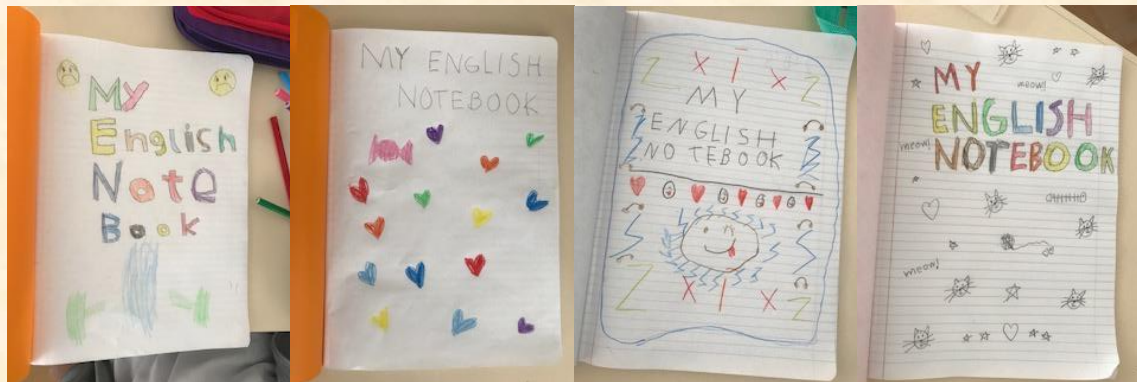 My
English
Note
Book
MY ENGLISH
NOTEBOOK
Z X I X Z
MY
ENGLISH
NOTEBOOK
Z X I X Z
MY meow!
ENGLISH
meow! NOTEBOOK
meow!